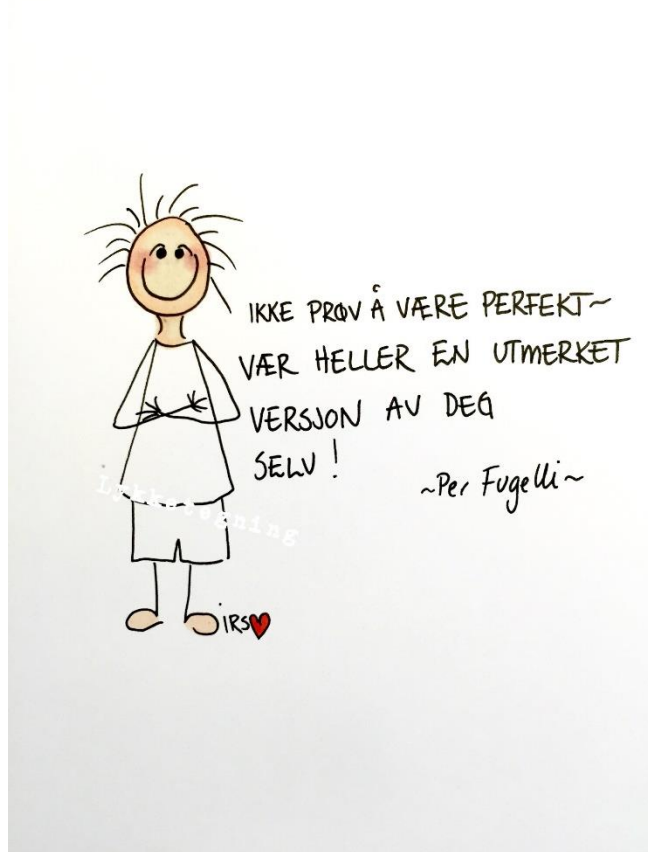 IKKE PRØV Å VÆRE PERFEKT~
VÆR HELLER EN UTMERKET
VERSJON AV DEG
SELV !
~Per Fugelli~
Lykketegning
iRS